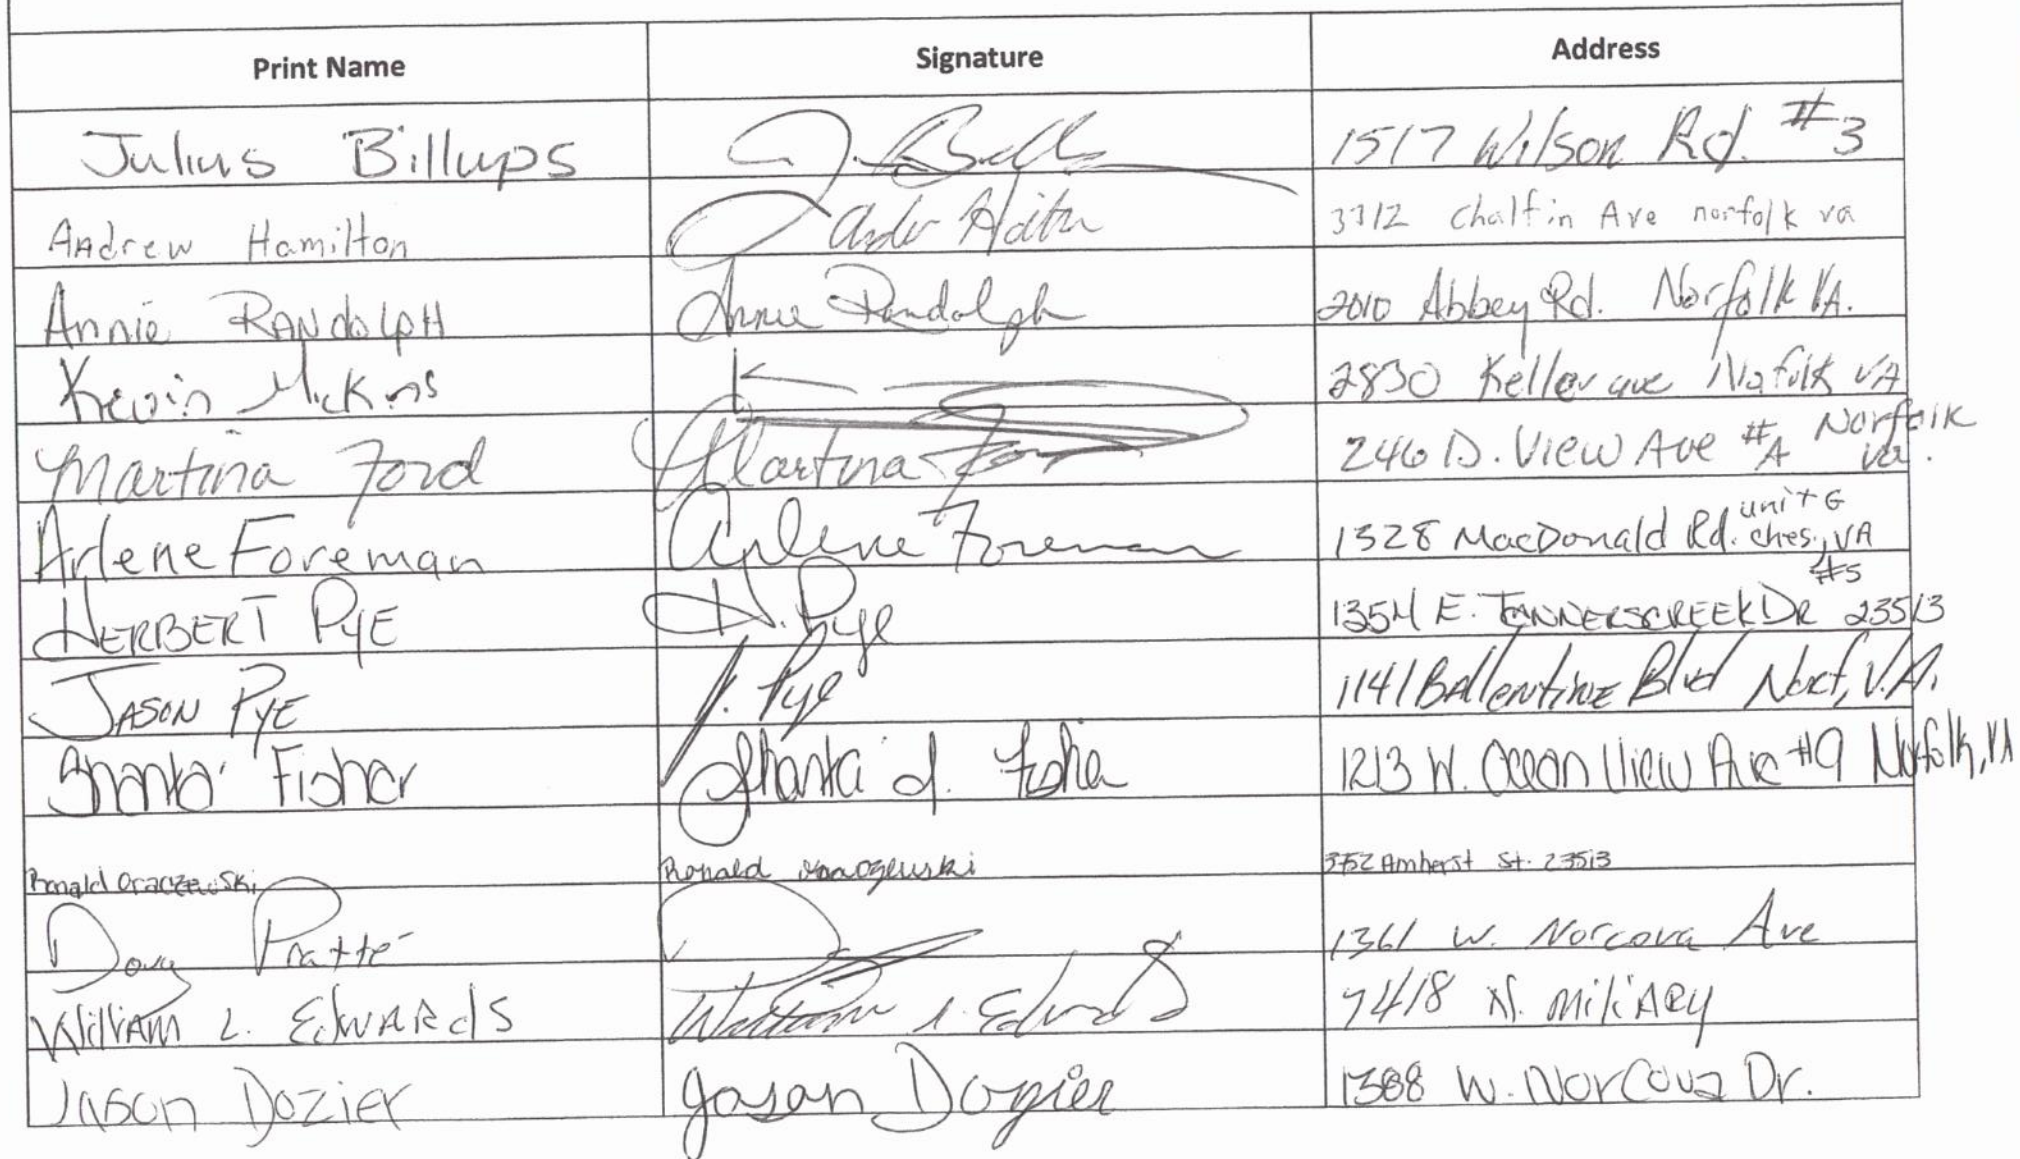 Print Name Signature Address
Julius Billups J. Bill 1517 Wilson Rd. #3
Andrew Hamilton 3312 Chalfin Ave norfolk va
Annie RANdolpH Annie Randolph 2010 Abbey Rd. Norfolk VA.
Kevin K 2830 Keller ave Nofolk VA
Martina Ford Martina Ford View Ave #A Norfolk va.
Arlene Foreman Arlene Foreman 1328 MacDonald Rd. unit G ches., VA
HERBERT PYE H. Pye E. TANNERSCREEK DR #5 23513
JASON PYE J. Pye 1141 Ballentine Blvd Norf, V.A.
Shanta' Fisher Shanta Fisher 1213 W. Ocean View Ave #9 Norfolk, VA
Ronald Oraczewski Ronald Oraczewski Amherst St. 23513
Doug Pratte 1361 W. Norcova Ave
William L. EdwARdS William L. Edwards 7418 N. miliARY
JASON DOZiER Jason Dozier 1388 W. Norcova Dr.